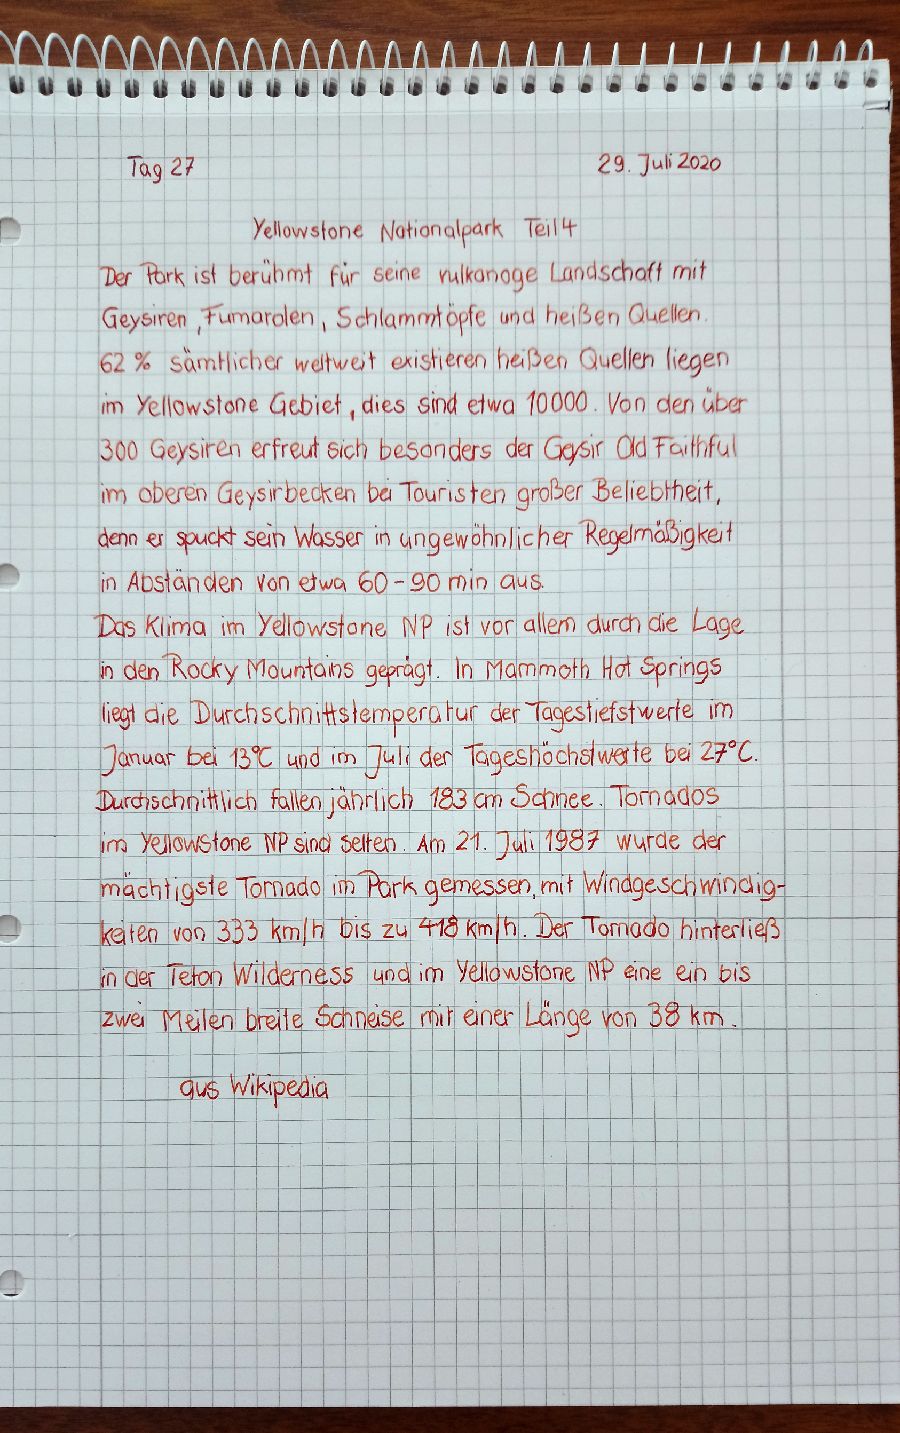 Tag 27
29. Juli 2020
Yellowstone Nationalpark Teil 4
Der Park ist berühmt für seine vulkanoge Landschaft mit
Geysiren, Fumarolen, Schlammtöpfe und heißen Quellen.
62 % sämtlicher weltweit existieren heißen Quellen liegen
im Yellowstone Gebiet, dies sind etwa 10000. Von den über
300 Geysiren erfreut sich besonders der Geysir Old Faithful
im oberen Geysirbecken bei Touristen großer Beliebtheit,
denn er spuckt sein Wasser in ungewöhnlicher Regelmäßigkeit
in Abständen von etwa 60-90 min aus.
Das Klima im Yellowstone NP ist vor allem durch die Lage
in den Rocky Mountains geprägt. In Mammoth Hot Springs
liegt die Durchschnittstemperatur der Tagestiefstwerte im
Januar bei 13°C und im Juli der Tageshöchstwerte bei 27°C.
Durchschnittlich fallen jährlich 183 cm Schnee. Tornados
im Yellowstone NP sind selten. Am 21. Juli 1987 wurde der
mächtigste Tornado im Park gemessen, mit Windgeschwindig-
keiten von 333 km/h bis zu 418 km/h. Der Tornado hinterließ
in der Teton Wilderness und im Yellowstone NP eine ein bis
zwei Meilen breite Schneise mit einer Länge von 38 km.
aus Wikipedia